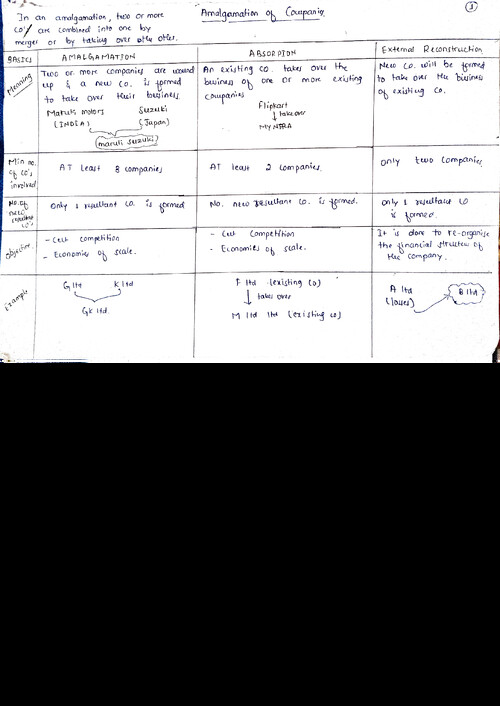 Amalgamation of Companies
1
In an amalgamation, two or more
co's are combined into one by
merger or by taking over othe other.
BASICS
AMALGAMATION
ABSORPTION
External Reconstruction
Meaning
Two or more companies are wound
up & a new co. is formed
to take over their business
Maruti motors Suzuki
(INDIA) (Japan)
maruti suzuki
An existing co. takes over the
business of one or more existing
companies
Flipkart
takeover
MYNTRA
New co. will be formed
to take over the business
of existing co.
Min no.
of co's
involved
AT Least 3 companies
AT Least 2 companies.
only two companies
No. of
new
resultant
co's
Only 1 resultant co. is formed
No. new resultant co. is formed.
only 1 resultant co
is formed.
Objective
- Cut competition
- Economies of scale.
- Cut competition
- Economies of scale.
It is done to re-organise
the financial structure of
the company.
Example
G ltd K ltd
GK ltd.
F ltd (existing co)
takes over
M ltd ltd (existing co)
A ltd
(losses)
B ltd